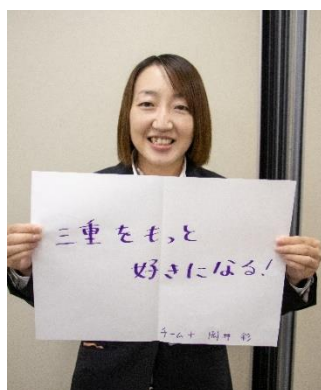 三重をもっと
好きになる!
チーム+ 岡井 彩